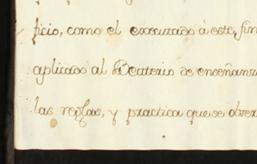 ficio, como el executado á este fin
aplicado al Beaterio de enseñanz
las reglas, y practica que se obser